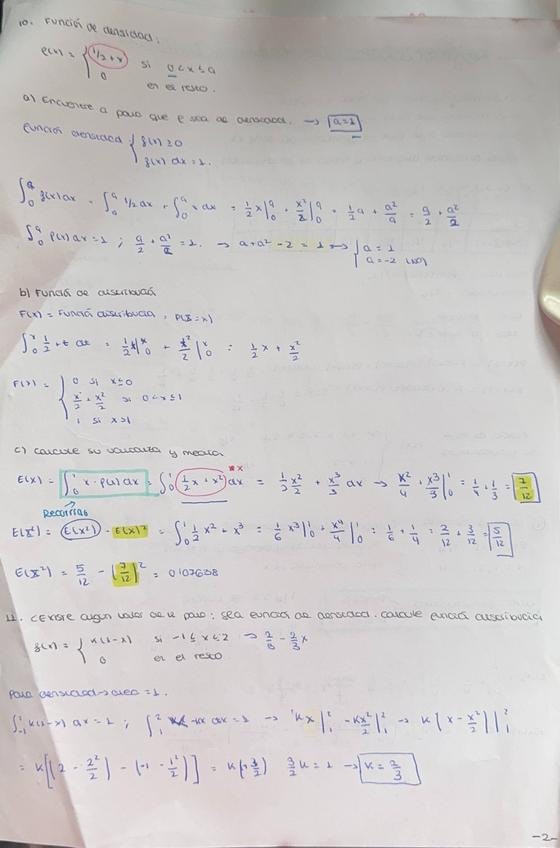 10. Función de densidad:
f(x) = { 1/2 + x si 0 < x ≤ a
0 en el resto.
a) Encuentre a para que f sea de densidad. → a=1
Función densidad { f(x) ≥ 0
f(x) dx = 1.
∫₀ᵃ f(x) dx = ∫₀ᵃ 1/2 dx + ∫₀ᵃ x dx = 1/2 x|₀ᵃ + x²/2|₀ᵃ = 1/2 a + a²/2 = a/2 + a²/2
∫₀ᵃ f(x) dx = 1 ; a/2 + a²/2 = 1. → a + a² - 2 = 1 → { a = 1
a = -2 (NO)
b) Función de distribución
F(x) = Función distribución,
∫₀ˣ 1/2 + t dt = 1/2 x|₀ˣ + x²/2|₀ˣ = 1/2 x + x²/2
F(x) = { 0 si x ≤ 0
x/2 + x²/2 si 0 < x ≤ 1
1 si x > 1
c) Calcule su varianza y media
E(x) = ∫₀¹ x · f(x) dx = ∫₀¹ (1/2 x + x²) dx = 1/2 x²/2 + x³/3 dx → x²/4 + x³/3|₀¹ = 1/4 + 1/3 = 7/12
Recorrido
E(x²) = E(x²) - E(x)² = ∫₀¹ 1/2 x² + x³ = 1/6 x³|₀¹ + x⁴/4|₀¹ = 1/6 + 1/4 = 2/12 + 3/12 = 5/12
E(x²) = 5/12 - (7/12)² = 0'07638
11. ¿Existe algún valor de k para: sea función de densidad. Calcule función distribución
f(x) = { k(1-x) si -1 ≤ x ≤ 2 → 2/3 - 2/3 x
0 en el resto
Para densidad → area = 1.
∫₋₁² k(1-x) dx = 1 ; ∫₋₁² -kx dx = 1 → kx|₋₁² - kx²/2|₋₁² → k[x - x²/2]|₋₁²
= k[(2 - 2²/2) - (-1 - 1²/2)] = k(+3/2) 3/2 k = 1 → k = 2/3
-2-